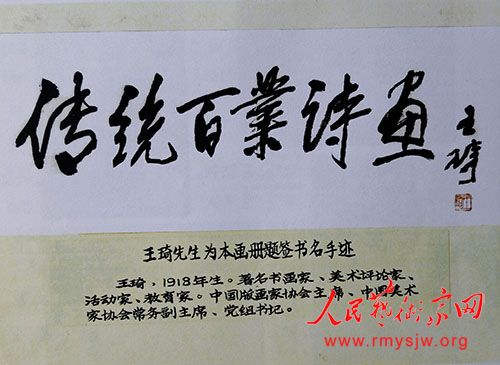 传统百業诗画
王琦
王琦先生为本画册题签书名手迹
王琦，1918年生。著名书画家、美术评论家、
活动家、教育家。中国版画家协会主席、中国美术
家协会常务副主席、党组书记。
人民藝術家网
www.rmysjw.org